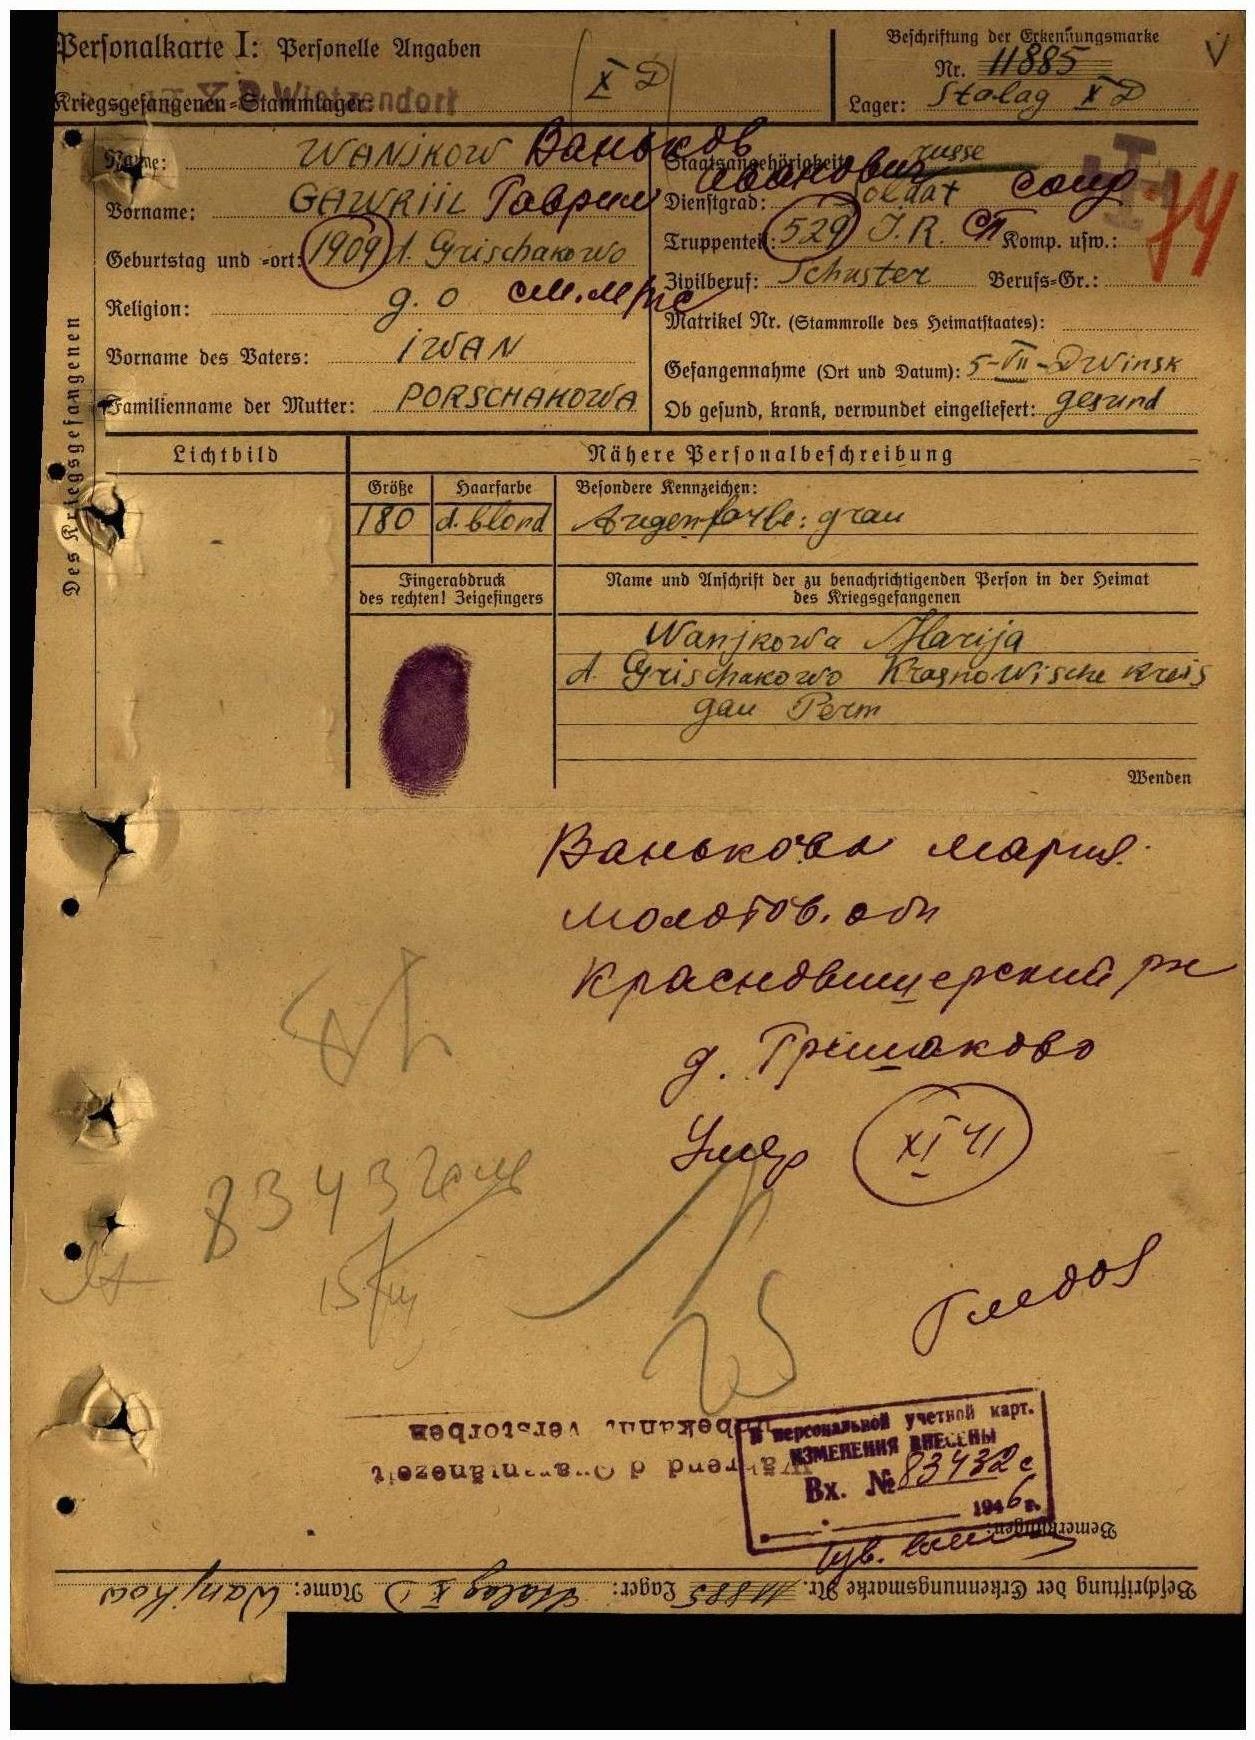 Personalkarte I: Personelle Angaben
X D
Kriegsgefangenen-Stammlager: Wietzendorf
Beschriftung der Erkennungsmarke
Nr. 11885
Lager: Stalag X D
Des Kriegsgefangenen
Name: WANJKOW Ваньков
Vorname: GAWRIIL Гавриил Иванович
Geburtstag und -ort: 1909 d. Grischakowo
Religion: g. o см. м/ж
Vorname des Vaters: IWAN
Familienname der Mutter: PORSCHAKOWA
Staatsangehörigkeit: russe
Dienstgrad: Soldat солд
Truppenteil: 529 J.R. сп Komp. usw.:
74
Zivilberuf: Schuster Berufs-Gr.:
Matrikel Nr. (Stammrolle des Heimatstaates):
Gefangennahme (Ort und Datum): 5-VII-Dwinsk
Ob gesund, krank, verwundet eingeliefert: gesund
Lichtbild
Nähere Personalbeschreibung
Größe Haarfarbe Besondere Kennzeichen:
180 d. blond Augenfarbe: grau
Fingerabdruck
des rechten! Zeigefingers
Name und Anschrift der zu benachrichtigenden Person in der Heimat
des Kriegsgefangenen
Wanjkowa Marija
d. Grischakowo Krasnowische Kreis
gau Perm
Wenden
Ванькова Мария
Молотов. обл
Красновишерский рн
д. Гришаково
Умер XI 41
83432
В персональной учетной карт.
ИЗМЕНЕНИЯ ВНЕСЕНЫ
Вх. № 83432с
1946 г.
Bemerkungen:
Während d. Quarantänezeit
unbekannt verstorben
Beschriftung der Erkennungsmarke Nr. 11885 Lager: Stalag X D Name: Wanjkow